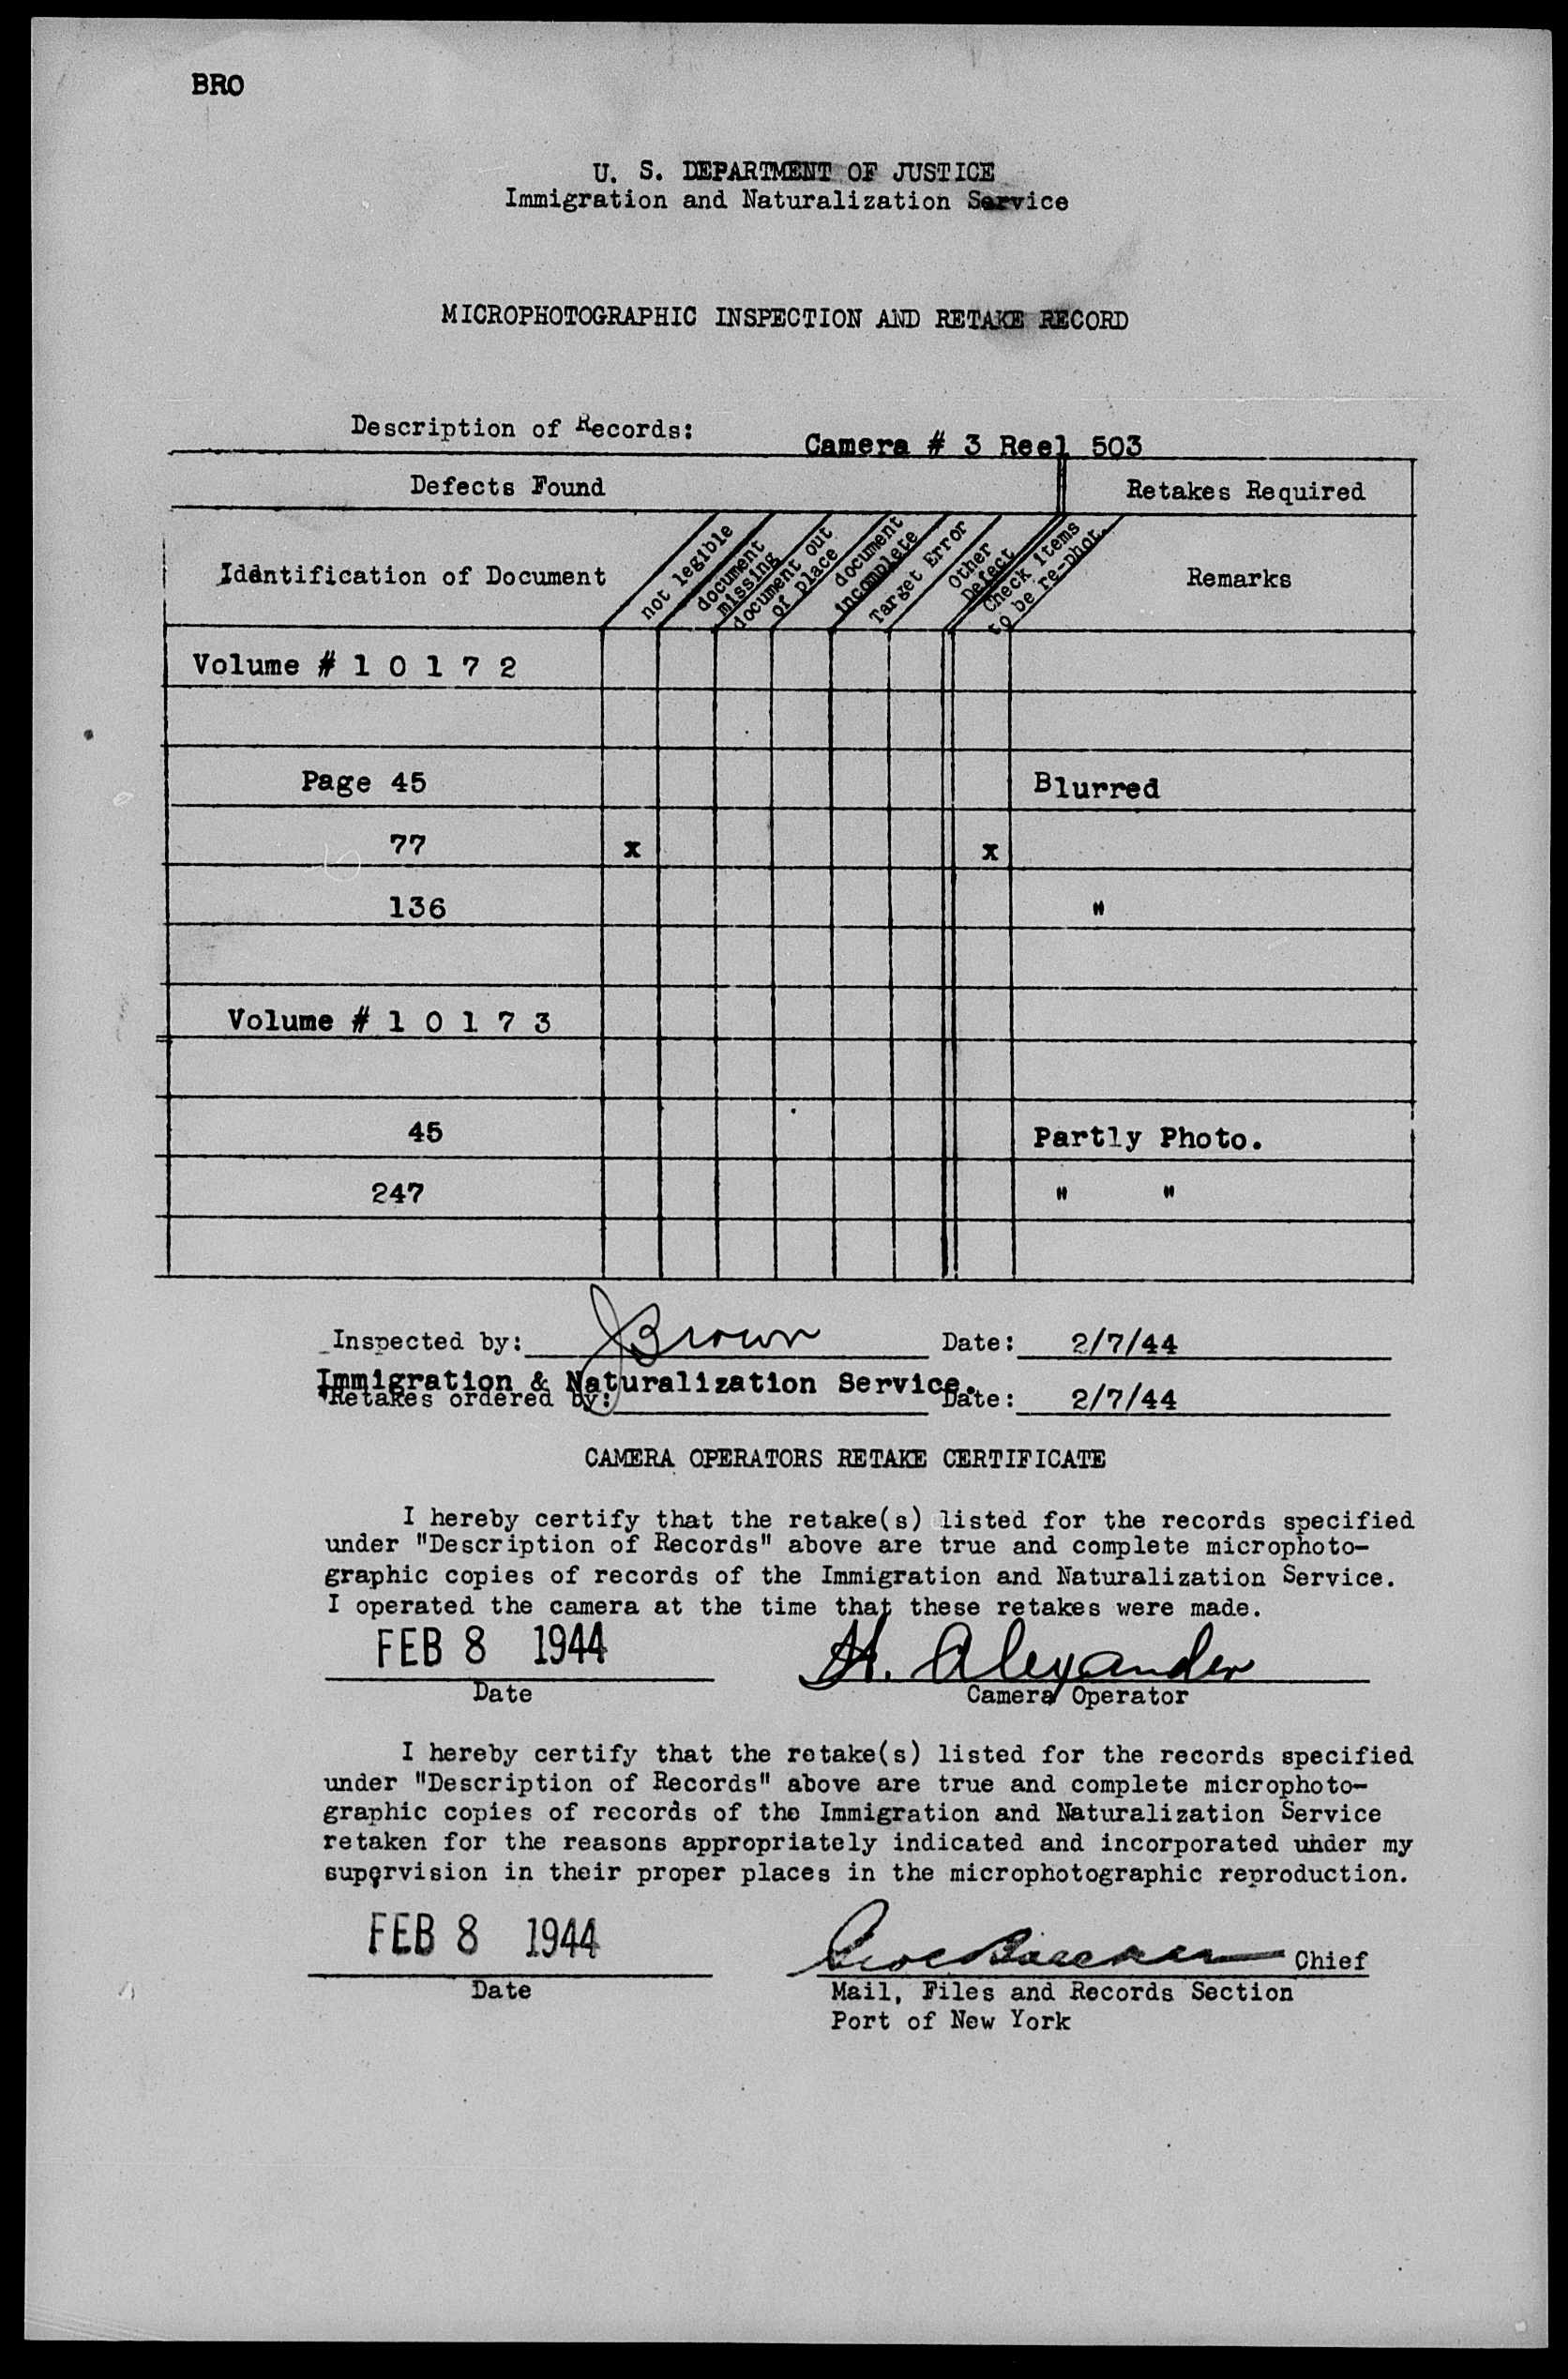 BRO
U. S. DEPARTMENT OF JUSTICE
Immigration and Naturalization Service
MICROPHOTOGRAPHIC INSPECTION AND RETAKE RECORD
Description of Records: Camera # 3 Reel 503
Defects Found Retakes Required
Identification of Document
not legible
document missing
document out of place
document incomplete
Target Error
Other Defect
Check items to be re-phot.
Remarks
Volume # 1 0 1 7 2
Page 45 Blurred
77 x x
136 "
Volume # 1 0 1 7 3
45 Partly Photo.
247 " "
Inspected by: JBrown Date: 2/7/44
Immigration & Naturalization Service.
*Retakes ordered by: Date: 2/7/44
CAMERA OPERATORS RETAKE CERTIFICATE
I hereby certify that the retake(s) listed for the records specified
under "Description of Records" above are true and complete microphoto-
graphic copies of records of the Immigration and Naturalization Service.
I operated the camera at the time that these retakes were made.
FEB 8 1944 H. Alexander
Date Camera Operator
I hereby certify that the retake(s) listed for the records specified
under "Description of Records" above are true and complete microphoto-
graphic copies of records of the Immigration and Naturalization Service
retaken for the reasons appropriately indicated and incorporated under my
supervision in their proper places in the microphotographic reproduction.
FEB 8 1944 Chief
Date Mail, Files and Records Section
Port of New York